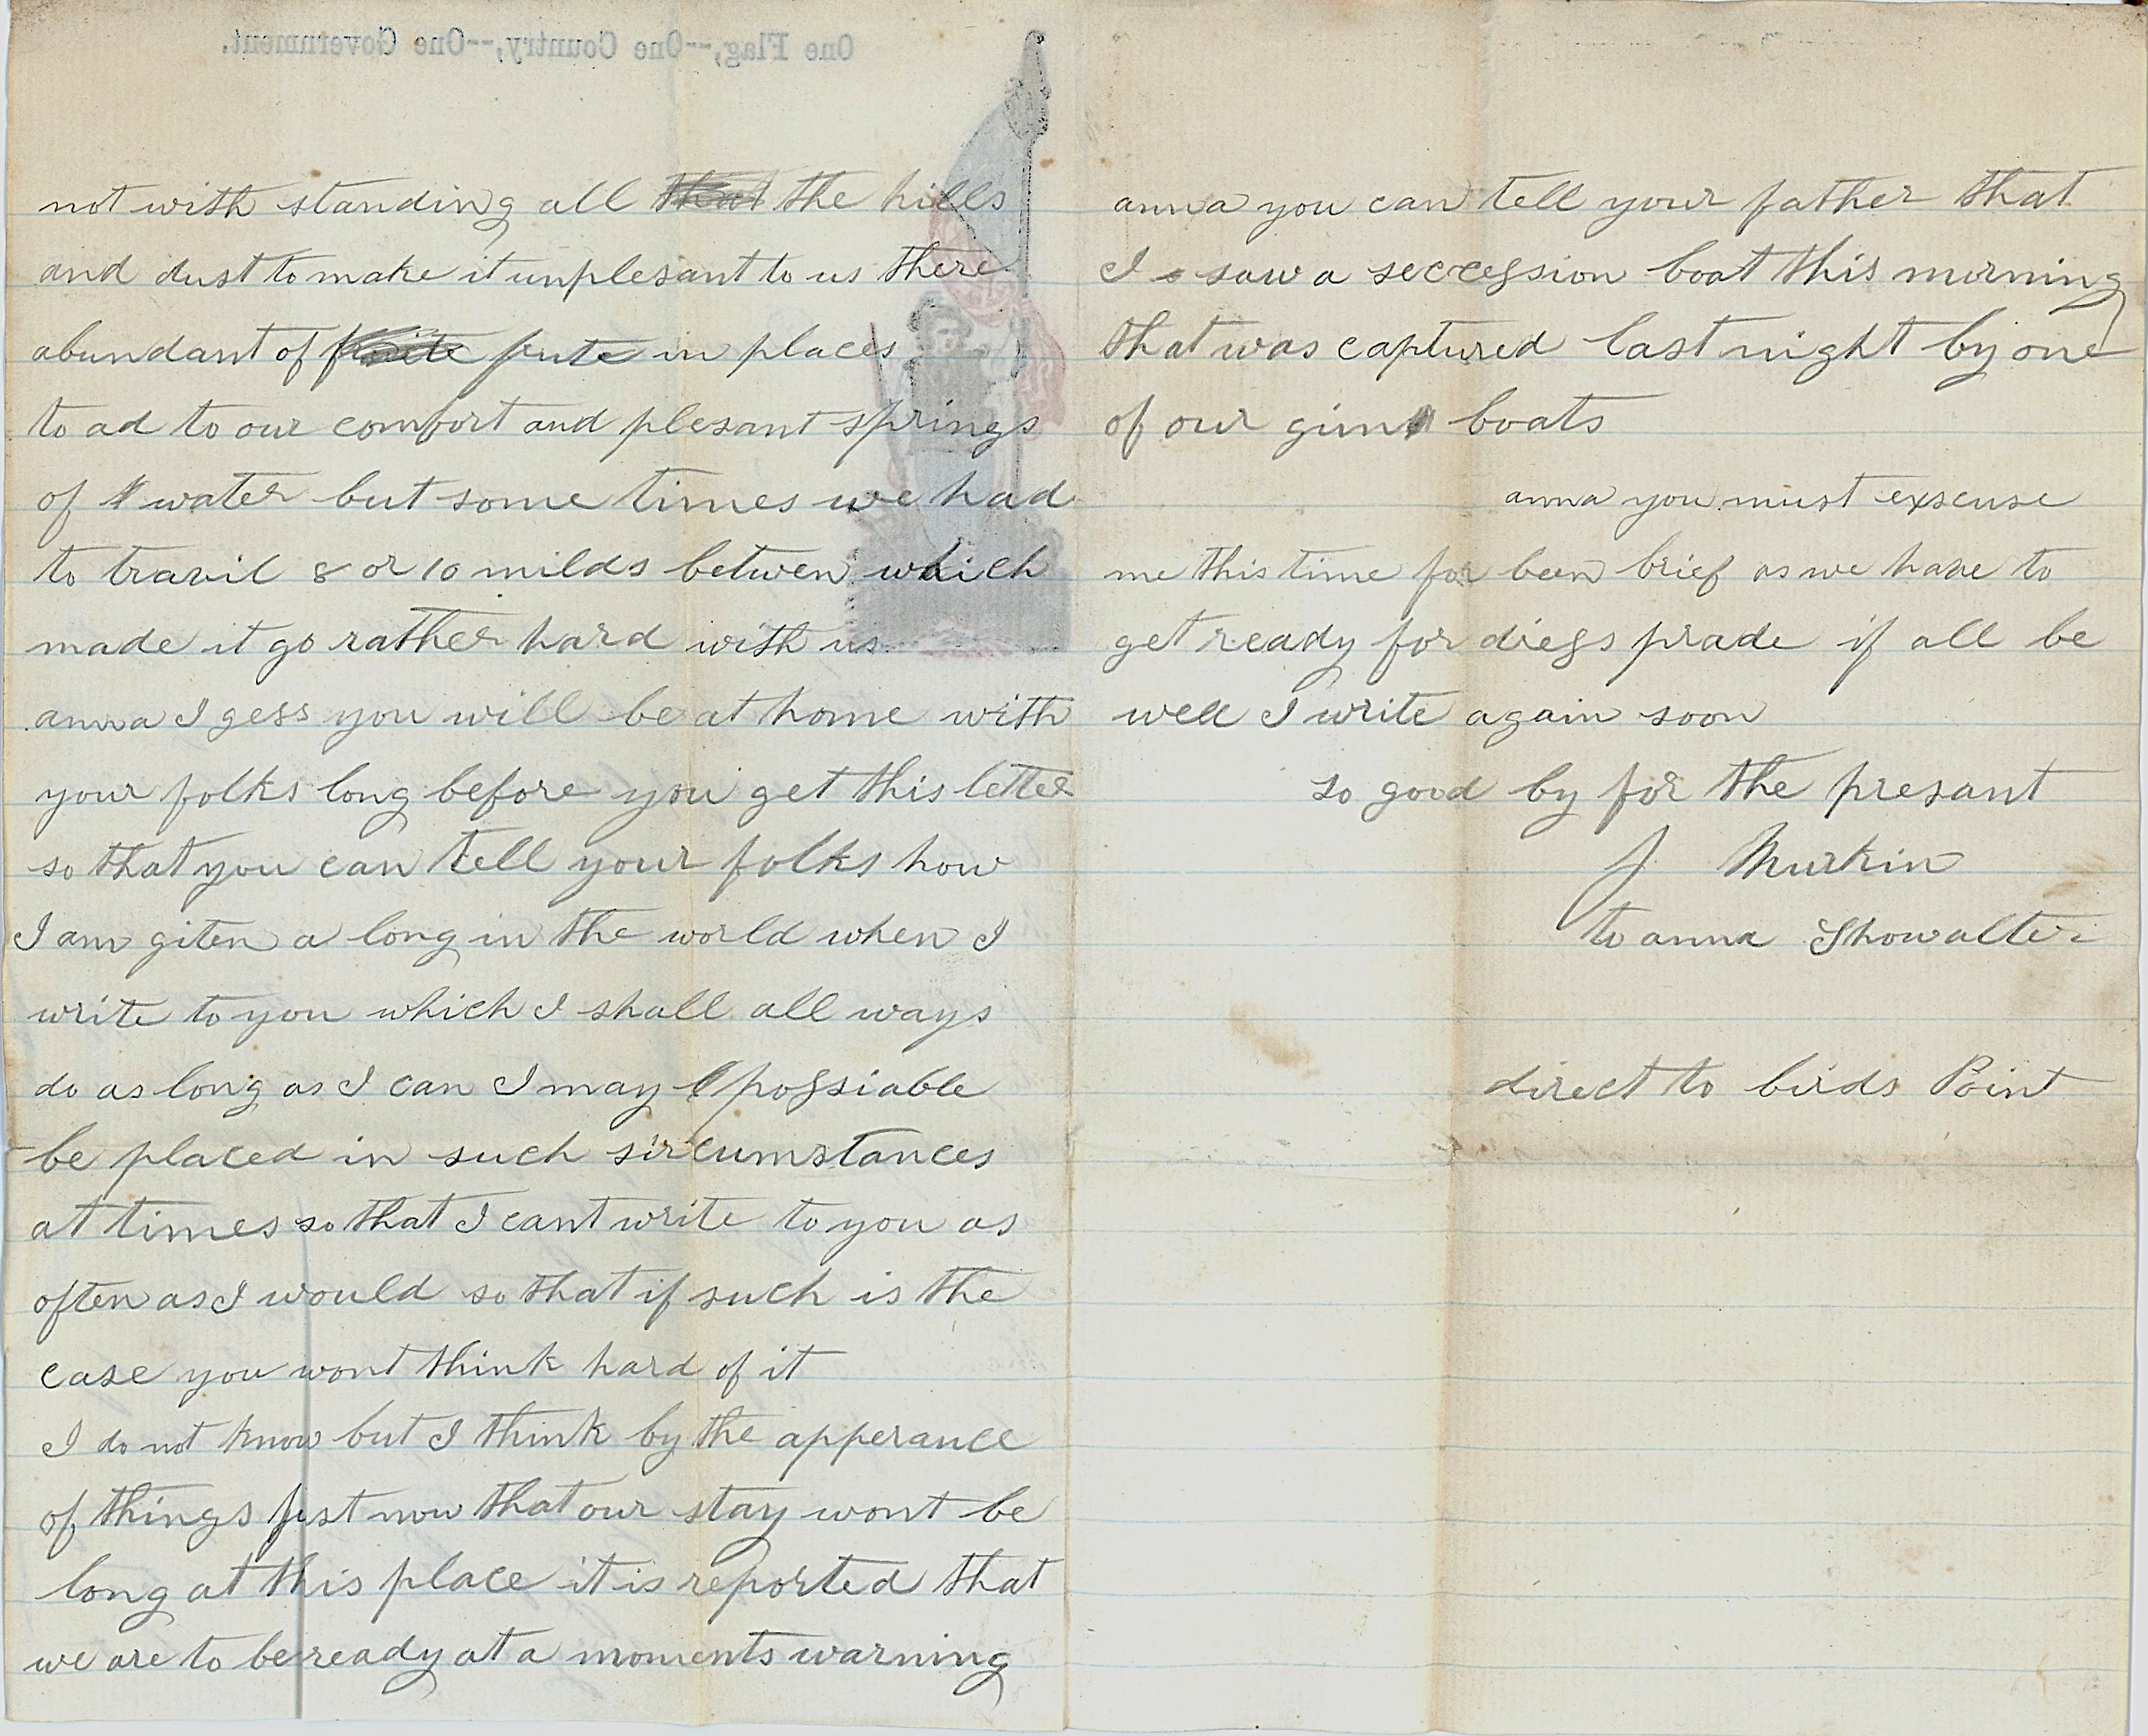 One Flag,--One Country,--One Government.
not with standing all that the hills
and dust to make it unplesant to us there
abundant of frute in places
to ad to our comfort and plesant springs
of water but some times we had
to travil 8 or 10 milds betwen which
made it go rather hard with us
anna I gess you will be at home with
your folks long before you get this letter
so that you can tell your folks how
I am giten a long in the world when I
write to you which I shall all ways
do as long as I can I may possiable
be placed in such sircumstances
at times so that I cant write to you as
often as I would so that if such is the
case you wont think hard of it
I do not know but I think by the apperance
of things just now that our stay wont be
long at this place it is reported that
we are to be ready at a moments warning
anna you can tell your father that
I saw a seccession boat this morning
that was captured last night by one
of our gun boats
anna you must exscuse
me this time for been brief as we have to
get ready for driess prade if all be
well I write again soon
so good by for the presant
J Murkin
to anna Showalter
direct to birds Point